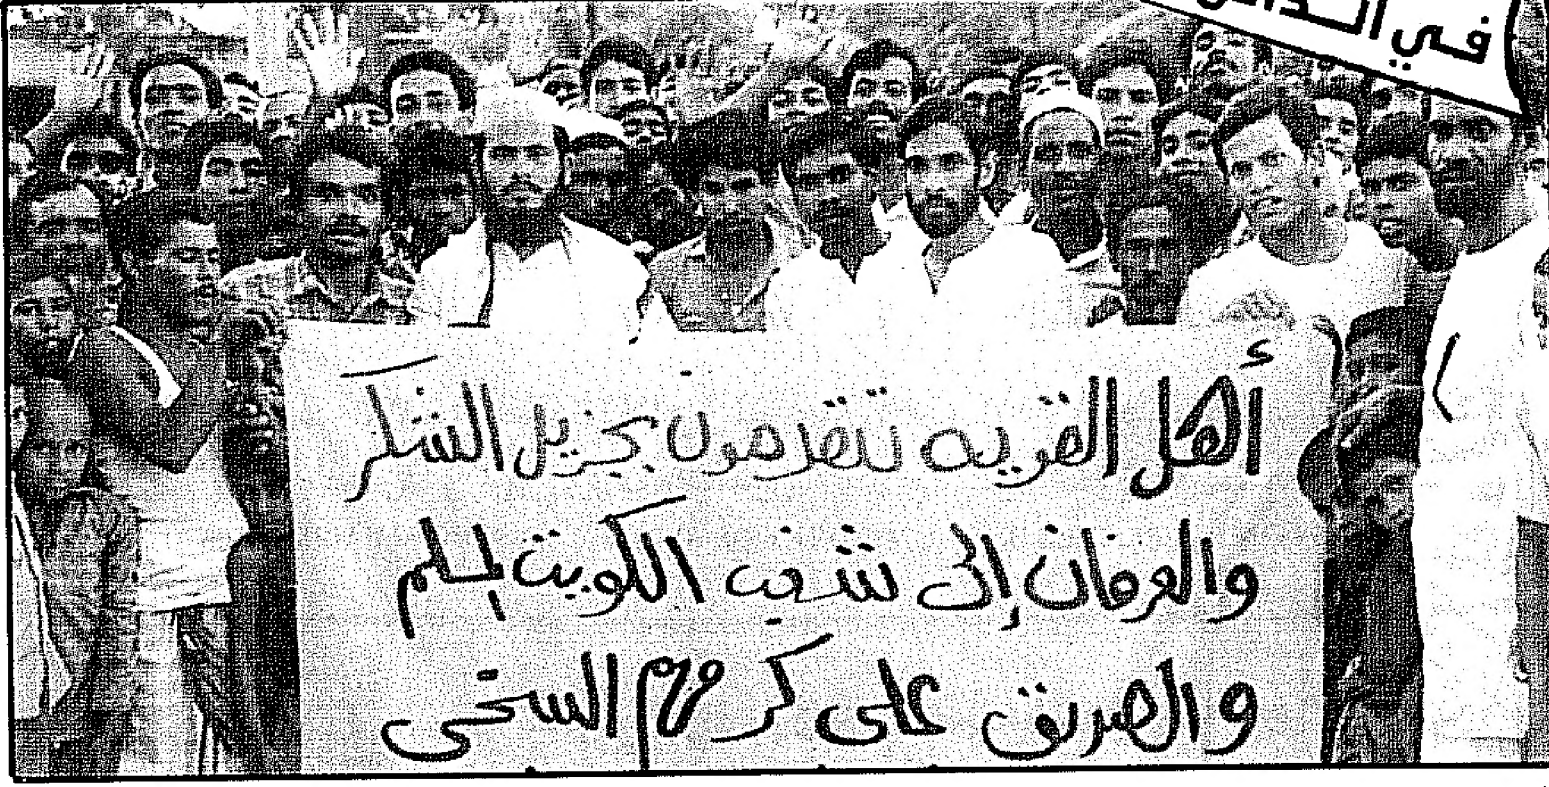 في
أهل القريه تتقدمون بجزيل الشكر
والعرفان إلى شعب الكويت المسلم
والصديق على كرمهم السخى